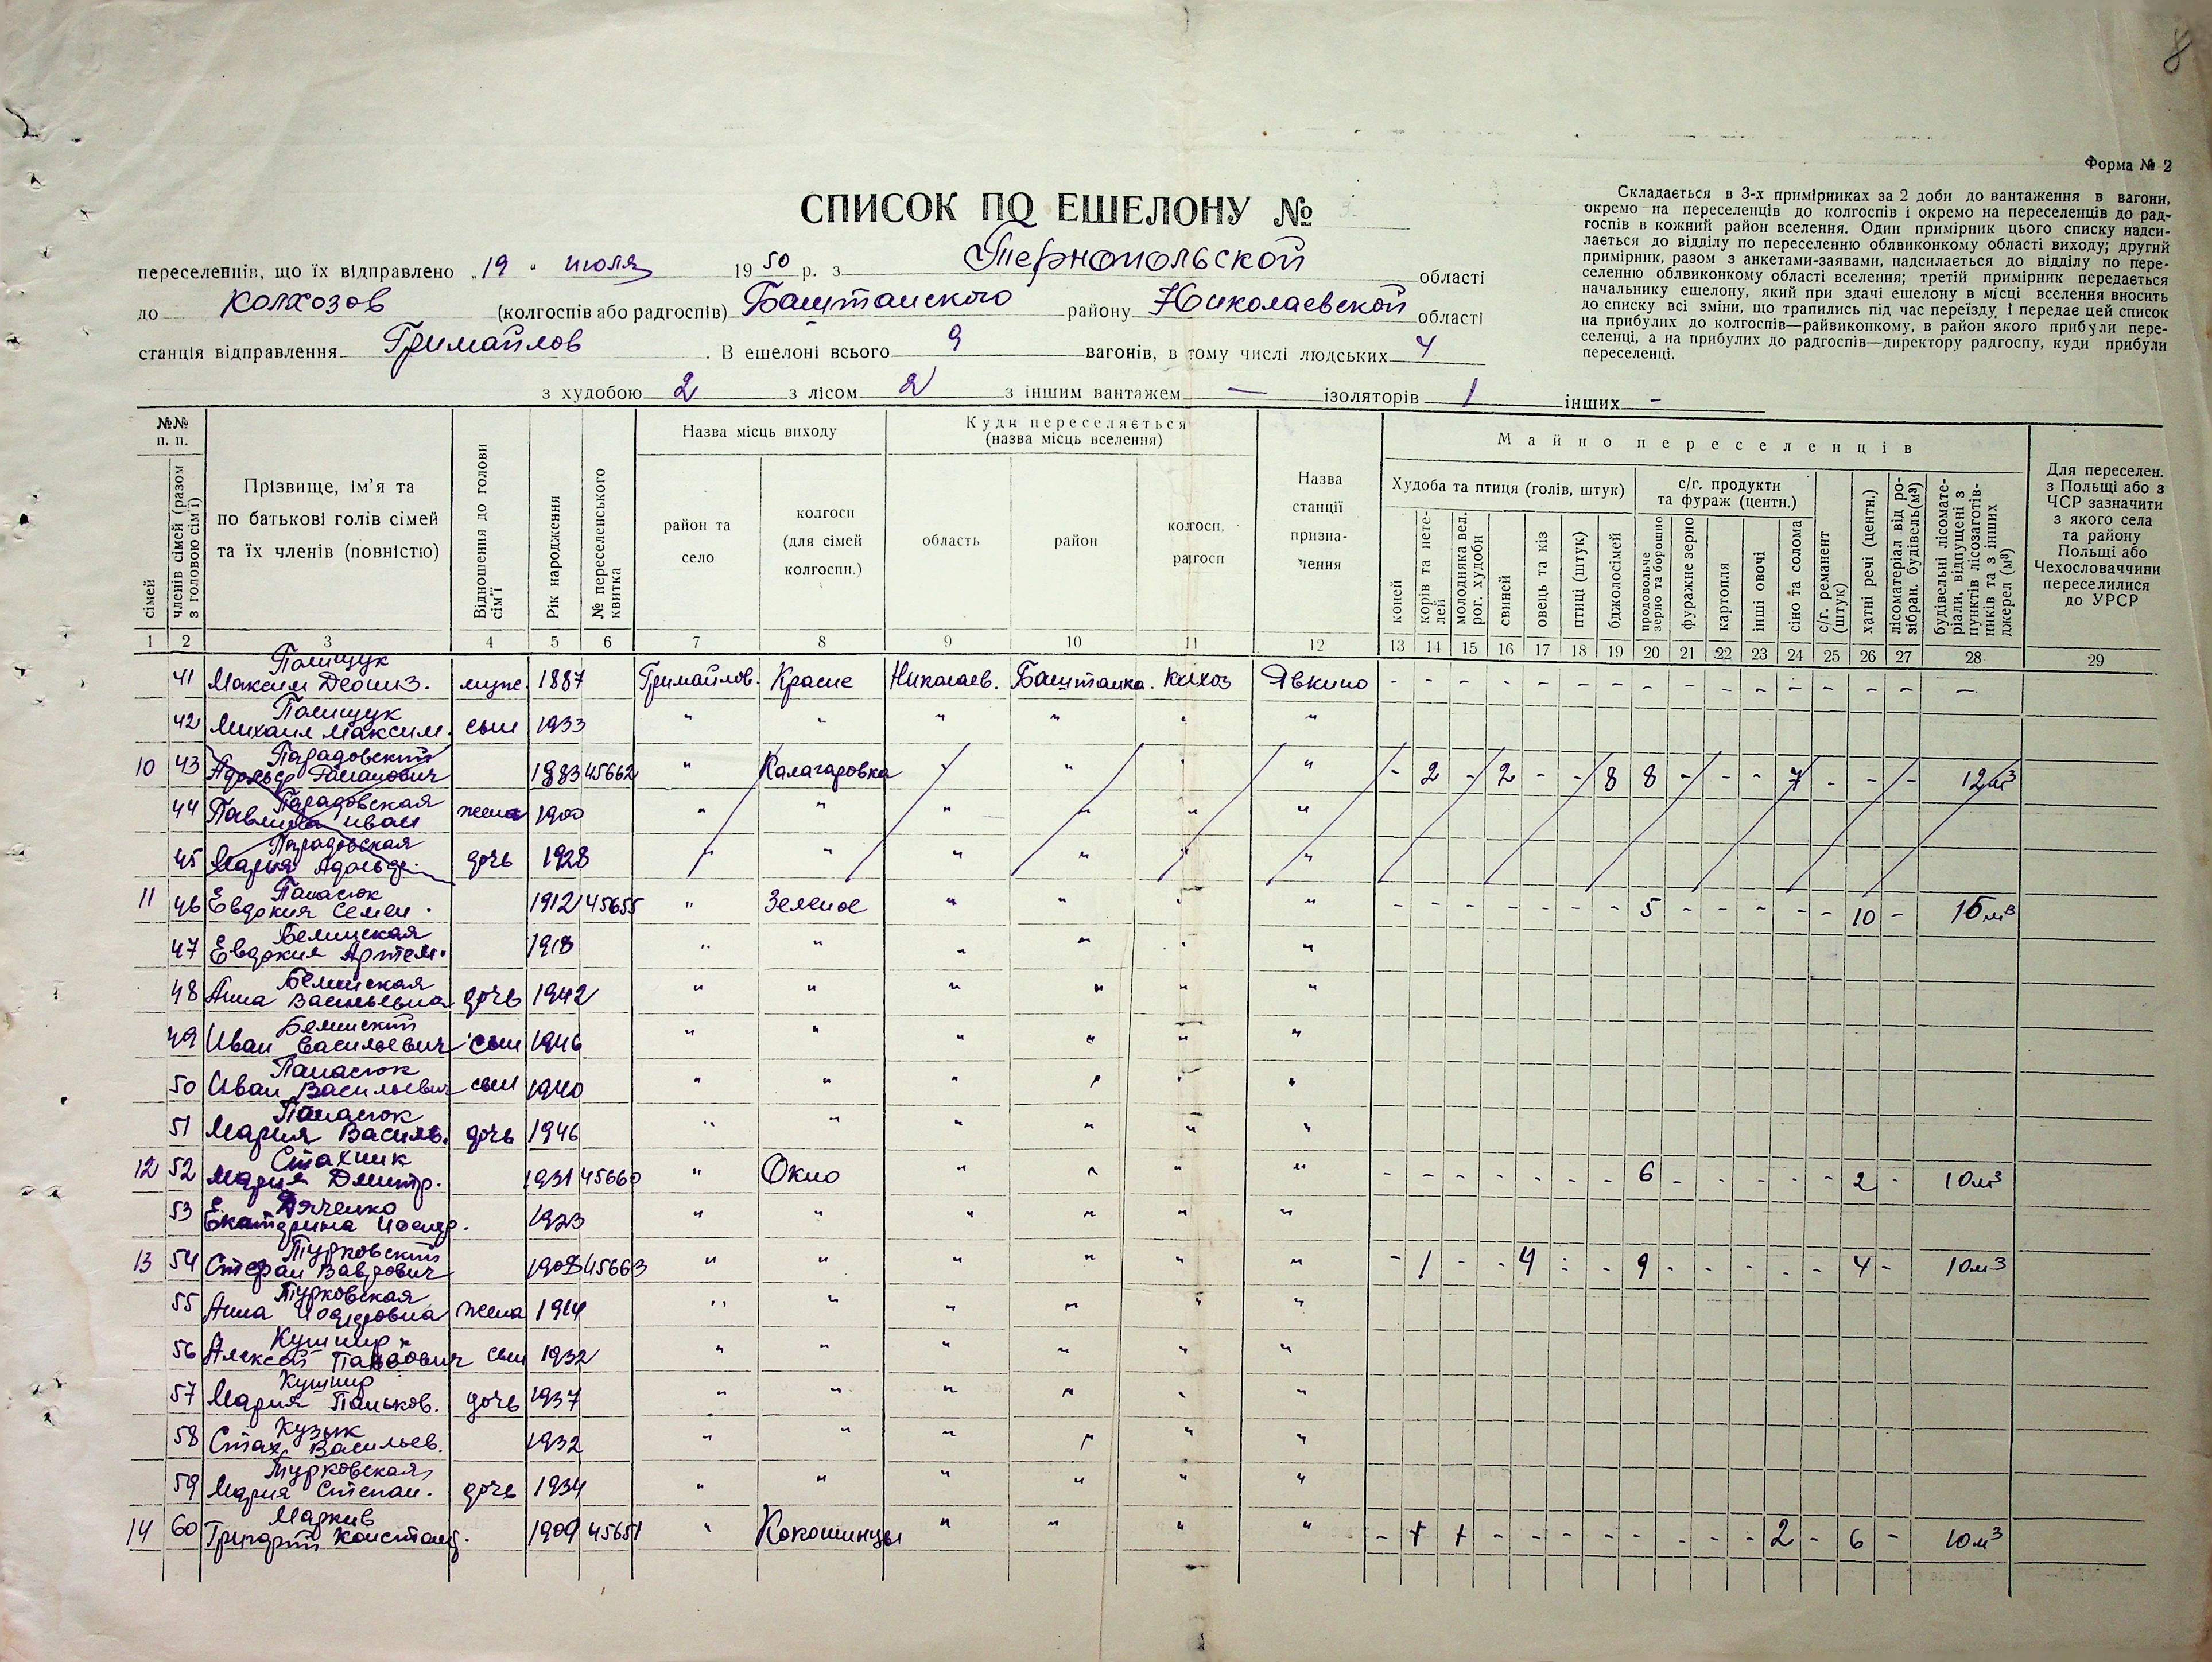 8
Форма № 2
СПИСОК ПО ЕШЕЛОНУ №
Складається в 3-х примірниках за 2 доби до вантаження в вагони,
окремо на переселенців до колгоспів і окремо на переселенців до рад-
госпів в кожний район вселення. Один примірник цього списку надси-
лається до відділу по переселенню облвиконкому області виходу; другий
примірник, разом з анкетами-заявами, надсилається до відділу по пере-
селенню облвиконкому області вселення; третій примірник передається
начальнику ешелону, який при здачі ешелону в місці вселення вносить
до списку всі зміни, що трапились під час переїзду, і передає цей список
на прибулих до колгоспів—райвиконкому, в район якого прибули пере-
селенці, а на прибулих до радгоспів—директору радгоспу, куди прибули
переселенці.
переселенців, що їх відправлено „19" июля 1950 р. з Тернопольской області
до колхозов (колгоспів або радгоспів) Баштанского району Николаевской області
станція відправлення Гримайлов. В ешелоні всього 9 вагонів, в тому числі людських 4
з худобою 2 з лісом 2 з іншим вантажем — ізоляторів 1 інших -
№№ п. п.
сімей
членів сімей (разом з головою сім'ї)
Прізвище, ім'я та
по батькові голів сімей
та їх членів (повністю)
Відношення до голови сім'ї
Рік народження
№ переселенського квитка
Назва місць виходу
район та село
колгосп (для сімей колгоспн.)
Куди переселяється
(назва місць вселення)
область
район
колгосп, радгосп
Назва станції призна-чення
Майно переселенців
Худоба та птиця (голів, штук)
коней
корів та нете-лей
молодняка вел. рог. худоби
свиней
овець та кіз
птиці (штук)
бджолосімей
с/г. продукти
та фураж (центн.)
продовольче зерно та борошно
фуражне зерно
картопля
інші овочі
сіно та солома
с/г. реманент (штук)
хатні речі (центн.)
лісоматеріал від ро-зібран. будівель (м³)
будівельні лісомате-ріали, відпущені з пунктів лісозаготів-ників та з інших джерел (м³)
Для переселен.
з Польщі або з
ЧСР зазначити
з якого села
та району
Польщі або
Чехословаччини
переселилися
до УРСР
1 2 3 4 5 6 7 8 9 10 11 12 13 14 15 16 17 18 19 20 21 22 23 24 25 26 27 28 29
Полищук
41 Максим Деониз. муж. 1887 Гримайлов. Красне Николаев. Баштанка. колхоз Явкино - - - - - - - - - - - - - - - —
Полищук
42 Михаил Максим. сын 1933 " " " " " "
Парадовский
10 43 Адольф Романович 1883 45662 " Калагаровка " " " " - 2 - 2 - - 8 8 - - - 7 - - - 12м³
Парадовская
44 Павлина Иван жена 1900 " " " " " "
Парадовская
45 Мария Адольф. дочь 1928 " " " " " "
Панасюк
11 46 Евдокия Семен. 1912 45655 " Зеленое " " " " - - - - - - - 5 - - - - - 10 - 15м³
Белинская
47 Евдокия Артем. 1918 " " " " " "
Белинская
48 Анна Васильевна дочь 1942 " " " " " "
Белинский
49 Иван Васильевич сын 1946 " " " " " "
Панасюк
50 Иван Васильевич сын 1940 " " " " " "
Панасюк
51 Мария Василь. дочь 1946 " " " " " "
Стахник
12 52 Мария Дмитр. 1931 45660 " Окно " " " " - - - - - - - 6 - - - - - 2 - 10м³
Дяченко
53 Екатерина Иосиф. 1923 " " " " " "
Турковский
13 54 Стефан Вавров­ич 1908 45663 " " " " " " - 1 - - 4 - - 9 - - - - - 4 - 10м³
Турковская
55 Анна жена 1914 " " " " " "
Кушнир
56 Алексей сын 1932 " " " " " "
Кушнир
57 Мария Паньков. дочь 1937 " " " " " "
Кузык
58 Стах Васильев. 1932 " " " " " "
Турковская
59 Мария Степан. дочь 1934 " " " " " "
Маркив
14 60 Григорий Констант. 1909 45651 " Кокошинцы " " " " - + + - - - - - - - - 2 - 6 - 10м³